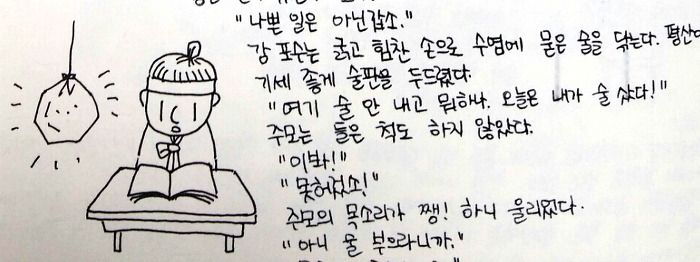 "나쁜 일은 아닌갑소."
강 포수는 굵고 힘찬 손으로 수염에 묻은 술을 닦는다. 평산
기세 좋게 술판을 두드렸다.
"여기 술 안 내고 뭐하나. 오늘은 내가 술 샀다!"
주모는 들은 척도 하지 않았다.
"이봐!"
"못허겄소!"
주모의 목소리가 쨍! 하니 울리었다.
"아니 물 부으라니가."